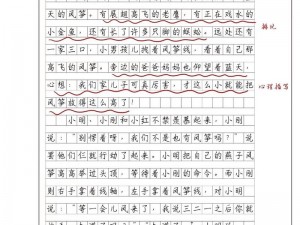 天的风筝。有展翅高飞的老鹰，有正在戏水的
小金鱼，还有长了许多只脚的蜈蚣。远处还有
一家三口，小男孩儿拽着风筝线，看着自己那
高高飞的风筝。旁边的爸爸妈妈也仰望着蓝天，
心想：我们家儿子可真厉害，才这么小就能把
风筝放得这么高了！
小刚、小刚和小红不禁羡慕起来，小刚
说：“别愣着呀，我们不是也有风筝吗？”说
要他们仨就行动了起来。小明把自己的燕子风
筝高高举过头顶，等待着小刚的命令。而小刚
则右手拿着线轴，左手拿着风筝线，对小明
说：“等一会儿风来了，我说三二一之后你就
排比
心理描写